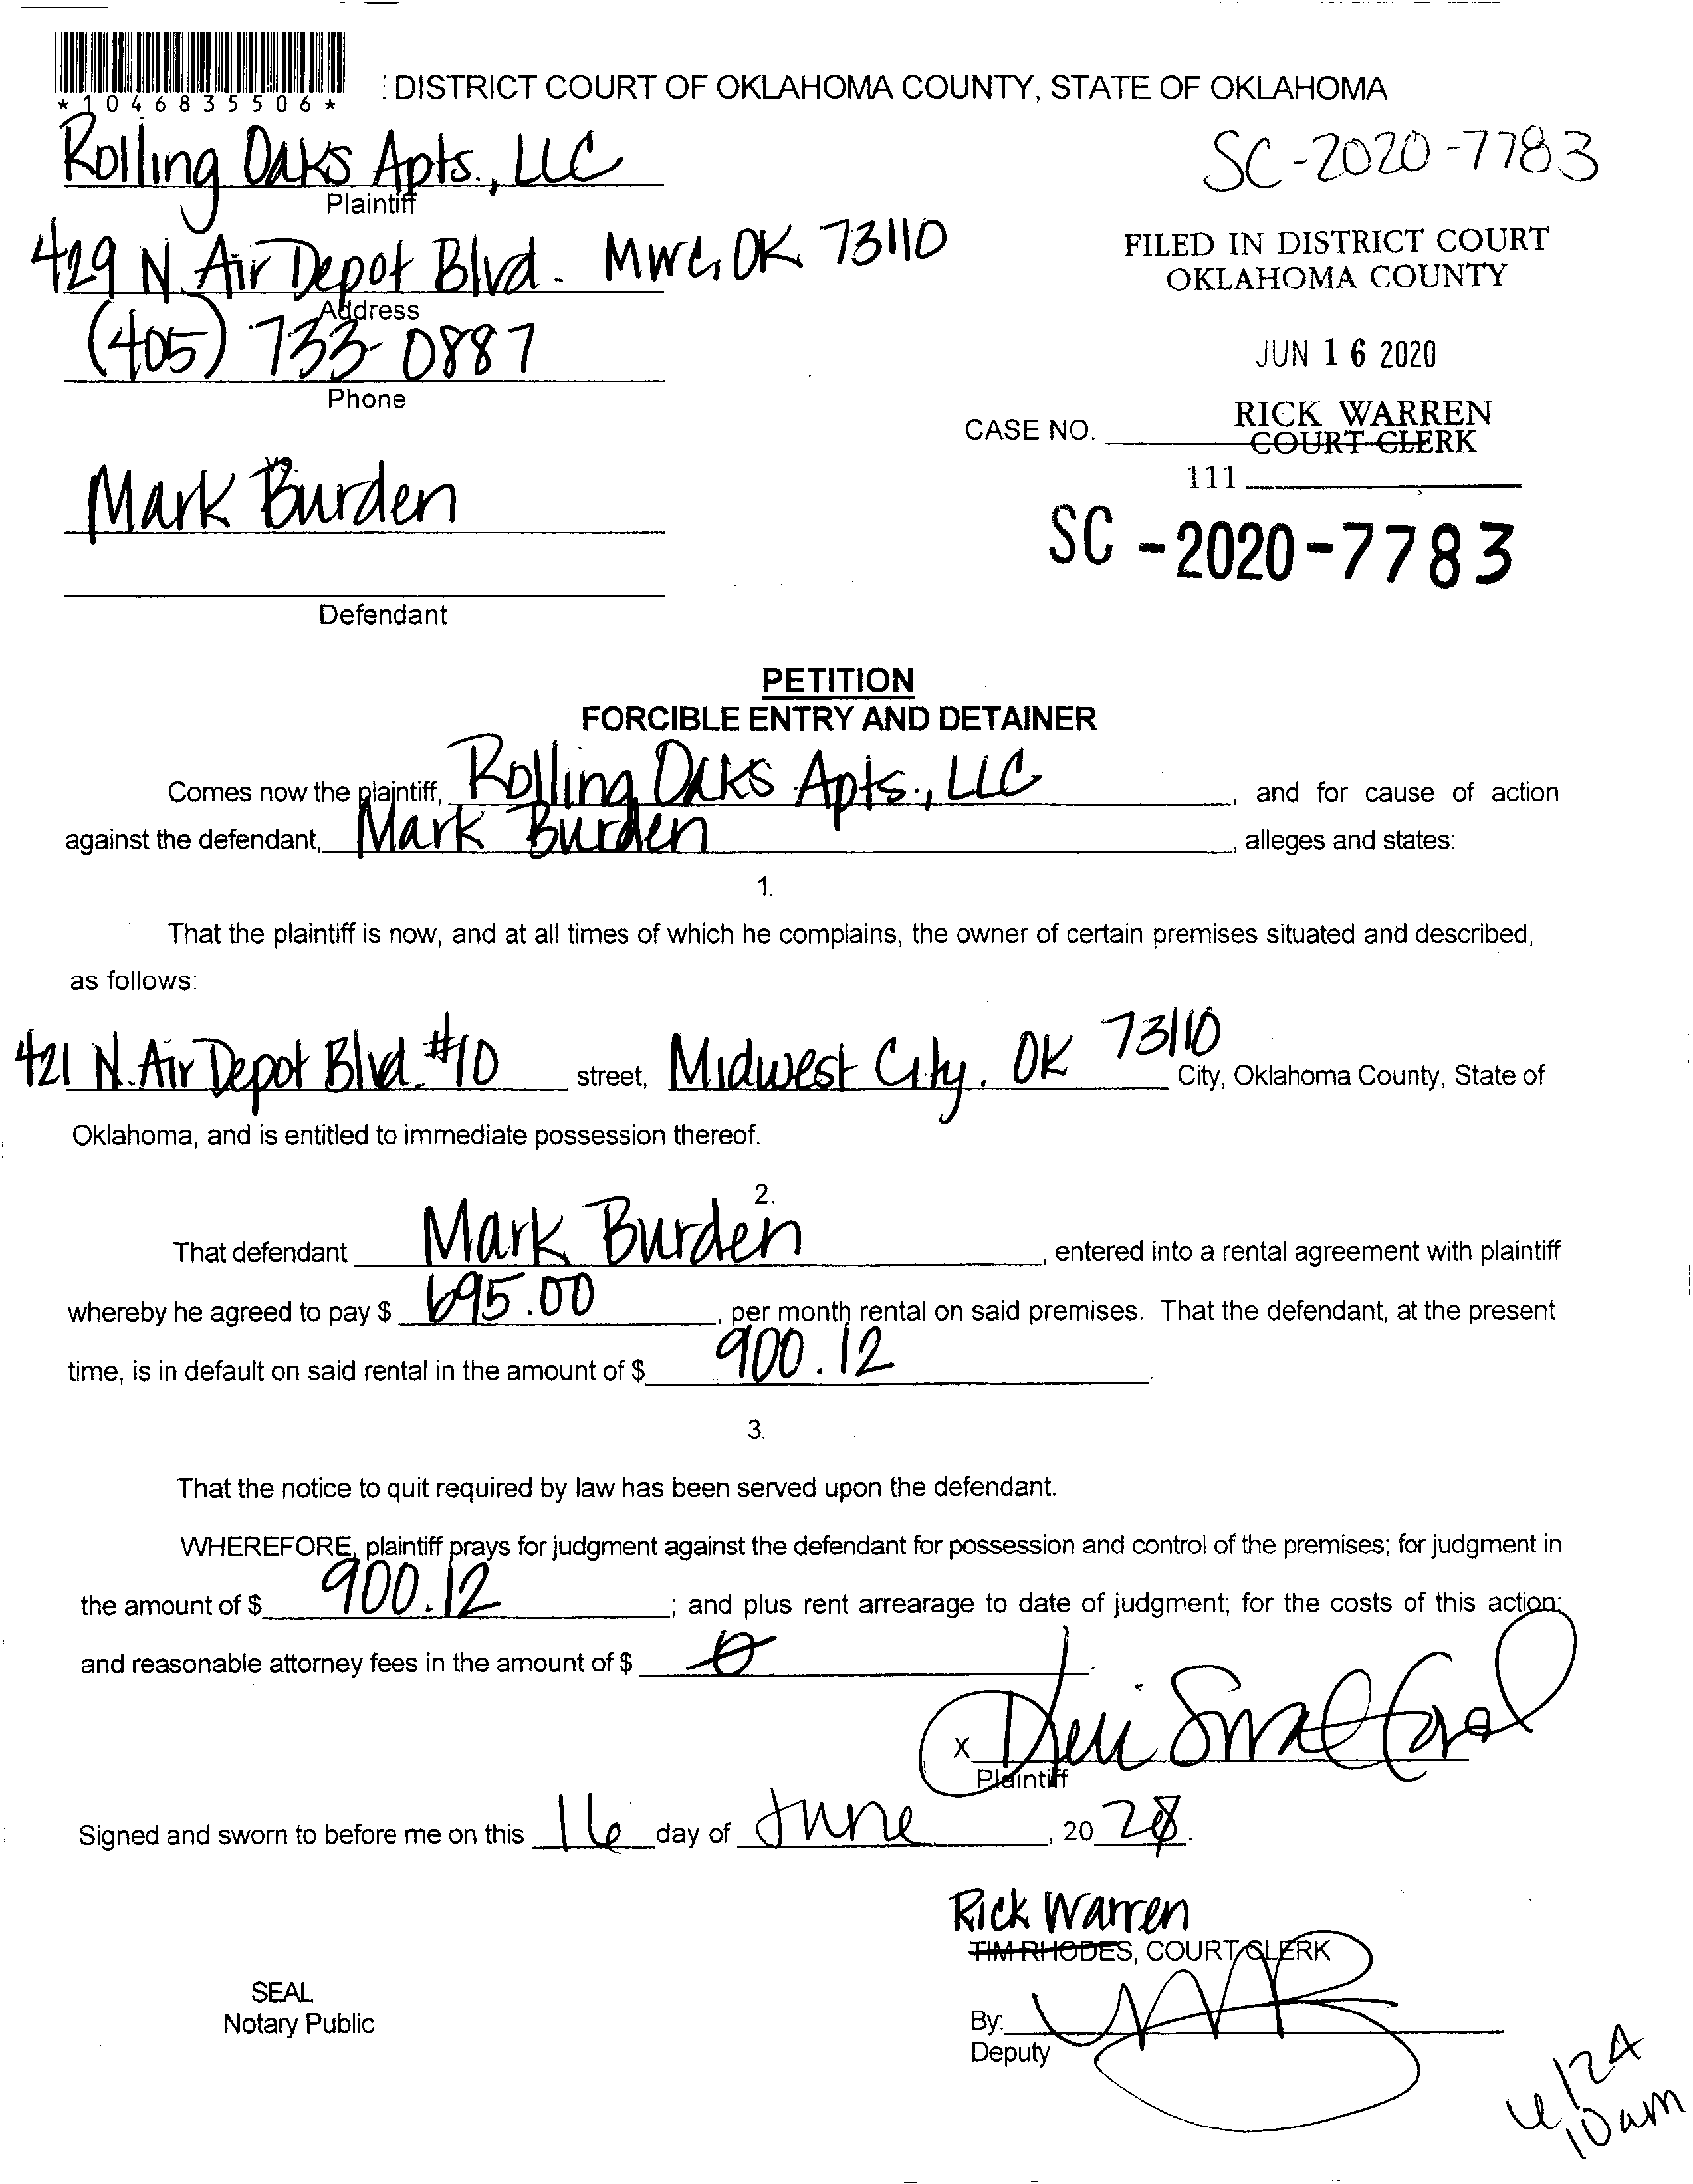 *1046835506*
: DISTRICT COURT OF OKLAHOMA COUNTY, STATE OF OKLAHOMA
Rolling Oaks Apts., LLC
Plaintiff
SC-2020-7783
429 N. Air Depot Blvd. MWC, OK 73110
Address
FILED IN DISTRICT COURT
OKLAHOMA COUNTY
(405) 733-0887
Phone
JUN 16 2020
RICK WARREN
COURT CLERK
CASE NO.
111
vs.
Mark Burden
SC-2020-7783
Defendant
PETITION
FORCIBLE ENTRY AND DETAINER
Comes now the plaintiff, Rolling Oaks Apts., LLC, and for cause of action
against the defendant, Mark Burden, alleges and states:
1.
That the plaintiff is now, and at all times of which he complains, the owner of certain premises situated and described,
as follows:
421 N. Air Depot Blvd. #10 street, Midwest City, OK 73110 City, Oklahoma County, State of
Oklahoma, and is entitled to immediate possession thereof.
2.
That defendant Mark Burden, entered into a rental agreement with plaintiff
whereby he agreed to pay $ 695.00, per month rental on said premises. That the defendant, at the present
time, is in default on said rental in the amount of $ 900.12.
3.
That the notice to quit required by law has been served upon the defendant.
WHEREFORE, plaintiff prays for judgment against the defendant for possession and control of the premises; for judgment in
the amount of $ 900.12; and plus rent arrearage to date of judgment; for the costs of this action;
and reasonable attorney fees in the amount of $ 0
X
Plaintiff
Signed and sworn to before me on this 16 day of June, 20 20.
Rick Warren
TIM RHODES, COURT CLERK
SEAL
Notary Public
By:
Deputy
6/24
10am